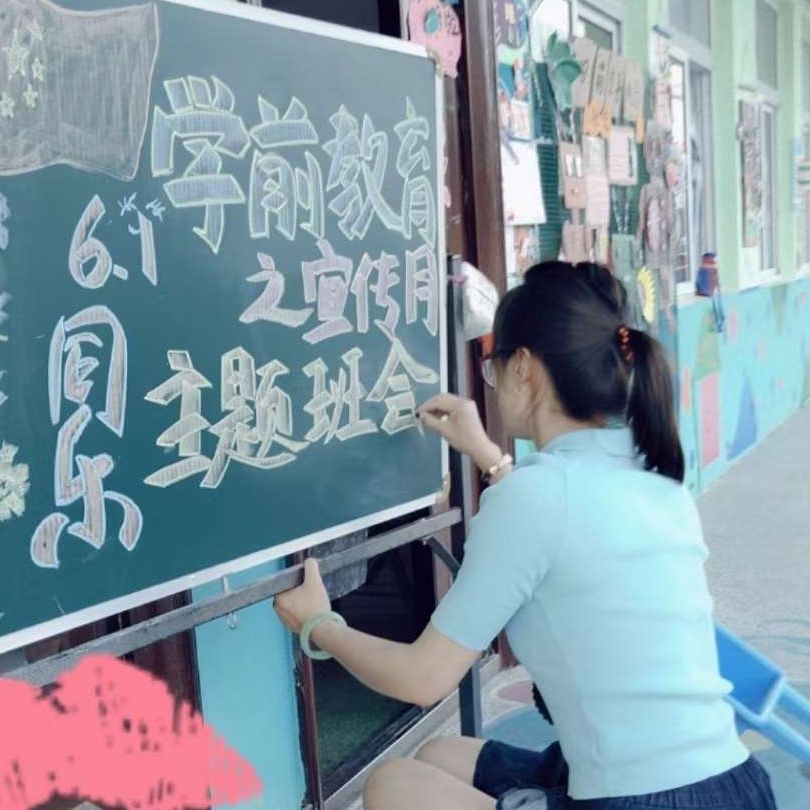 学前教育
之宣传月
主题班会
6.1
同乐